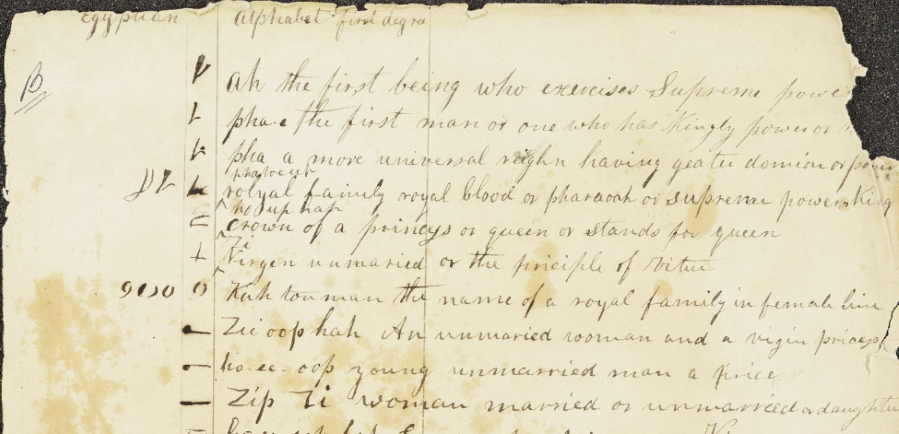 egyptian alphabet first degre
B
ah the first being who exercises Supreme power
pha-e the first man or one who has Kingly power or
pha a more universal reighn having geater domion or power
phatoeup
royal family royal blood or pharaoh or supreme power King
ho oop hah
crown of a princess or queen or stands for queen
Zi
Virgen unmaried or the priciple of Vitue
Kah tou man the name of a royal family in female line
Zi oop hah An unmaried woman and a vigin pricess
ho-ee-oop young unmarried man a price
Zip Zi woman married or unmarried or daughter